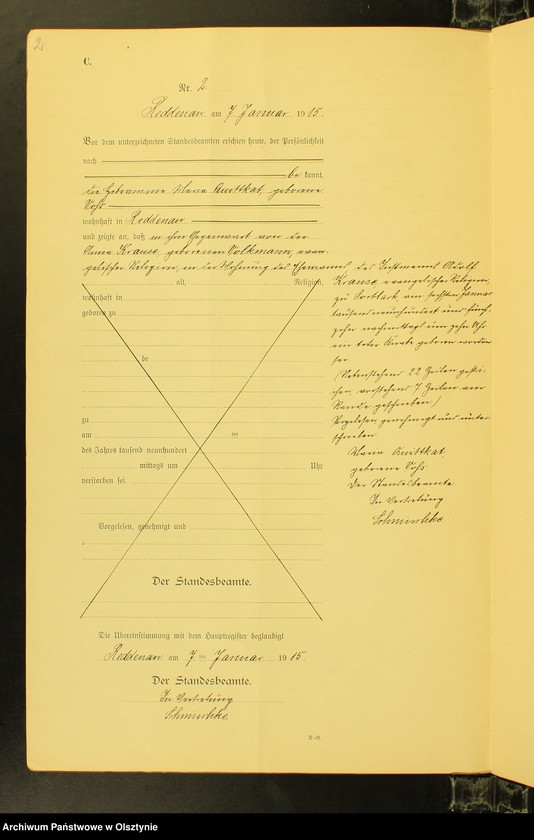 2.
C.
Nr. 2
Reddenau am 7 Januar 1915.
Vor dem unterzeichneten Standesbeamten erschien heute, der Persönlichkeit
nach
be kannt,
die Hebamme Maria Amttkat, geborene
Vohs
wohnhaft in Reddenau
und zeigte an, daß in ihrer Gegenwart von der
Krause, geborenen Volkmann, evan-
gelischer Religion, in der Wohnung des Ehemannes, des Instmanns Adolf
Krause, evangelischer Religion,
zu Tortlack am sechsten Januar
tausend neunhundert und fünf-
zehn nachmittags um zehn Uhr
ein toter Knabe geboren worden
sei
(Untenstehend 22 Zeilen gestri-
chen, vorstehend 7 Zeilen am
Rande geschrieben)
Vorgelesen, genehmigt und unter-
schrieben
Maria Amttkat
geborene Vohs
Der Standesbeamte.
In Vertretung
alt, Religion,
wohnhaft in
geboren zu
de
zu
am ten
des Jahres tausend neunhundert
mittags um Uhr
verstorben sei.
Vorgelesen, genehmigt und
Der Standesbeamte.
Die Übereinstimmung mit dem Hauptregister beglaubigt
Reddenau am 7 ten Januar 1915.
Der Standesbeamte.
In Vertretung
Archiwum Państwowe w Olsztynie